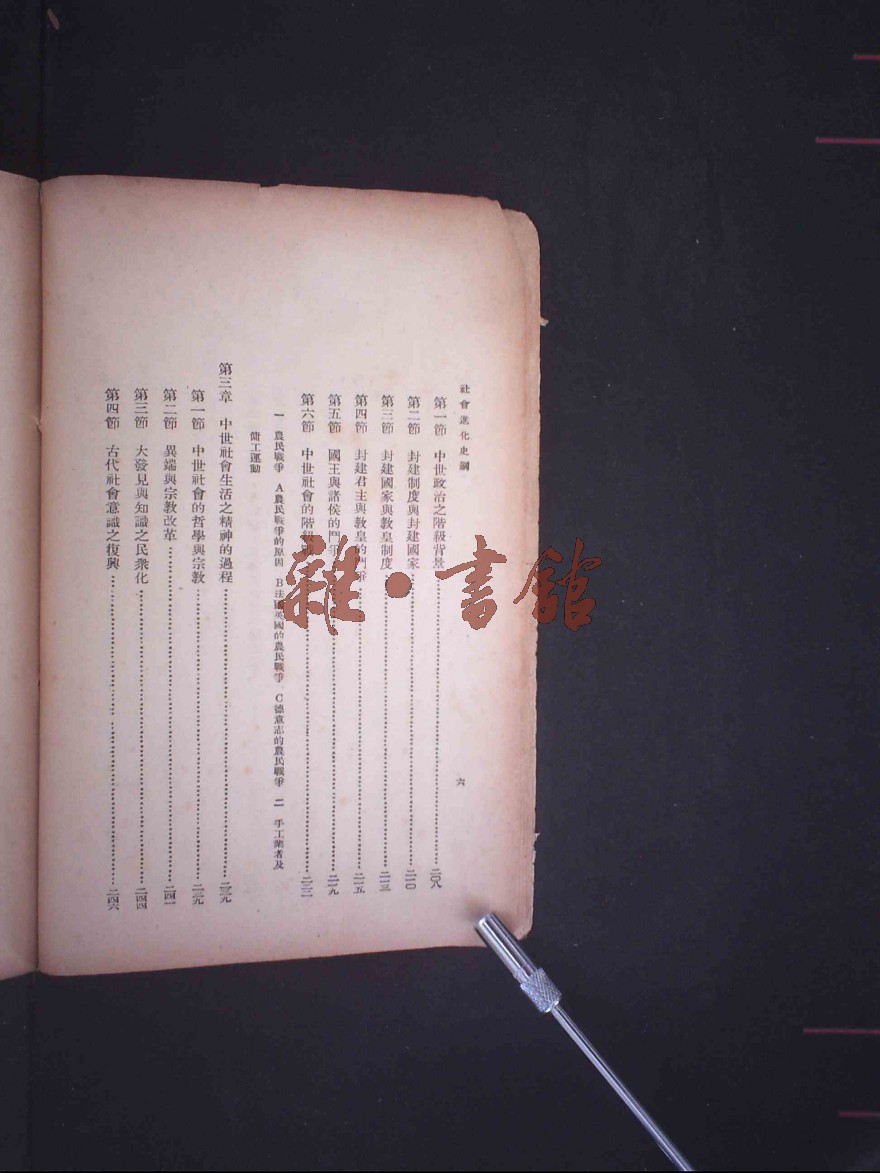 社會進化史綱
六
第一節　中世政治之階級背景……二〇八
第二節　封建制度與封建國家……二一〇
第三節　封建國家與教皇制度……二一三
第四節　封建君主與教皇的鬥爭……二一五
第五節　國王與諸侯的鬥爭……二一九
第六節　中世社會的階級戰……二三二
一　農民戰爭　A農民戰爭的原因　B法國英國的農民戰爭　C德意志的農民戰爭　二　手工業者及
傭工運動
第三章　中世社會生活之精神的過程……二三九
第一節　中世社會的哲學與宗教……二三九
第二節　異端與宗教改革……二四一
第三節　大發見與知識之民衆化……二四四
第四節　古代社會意識之復興……二四六
雜·書館